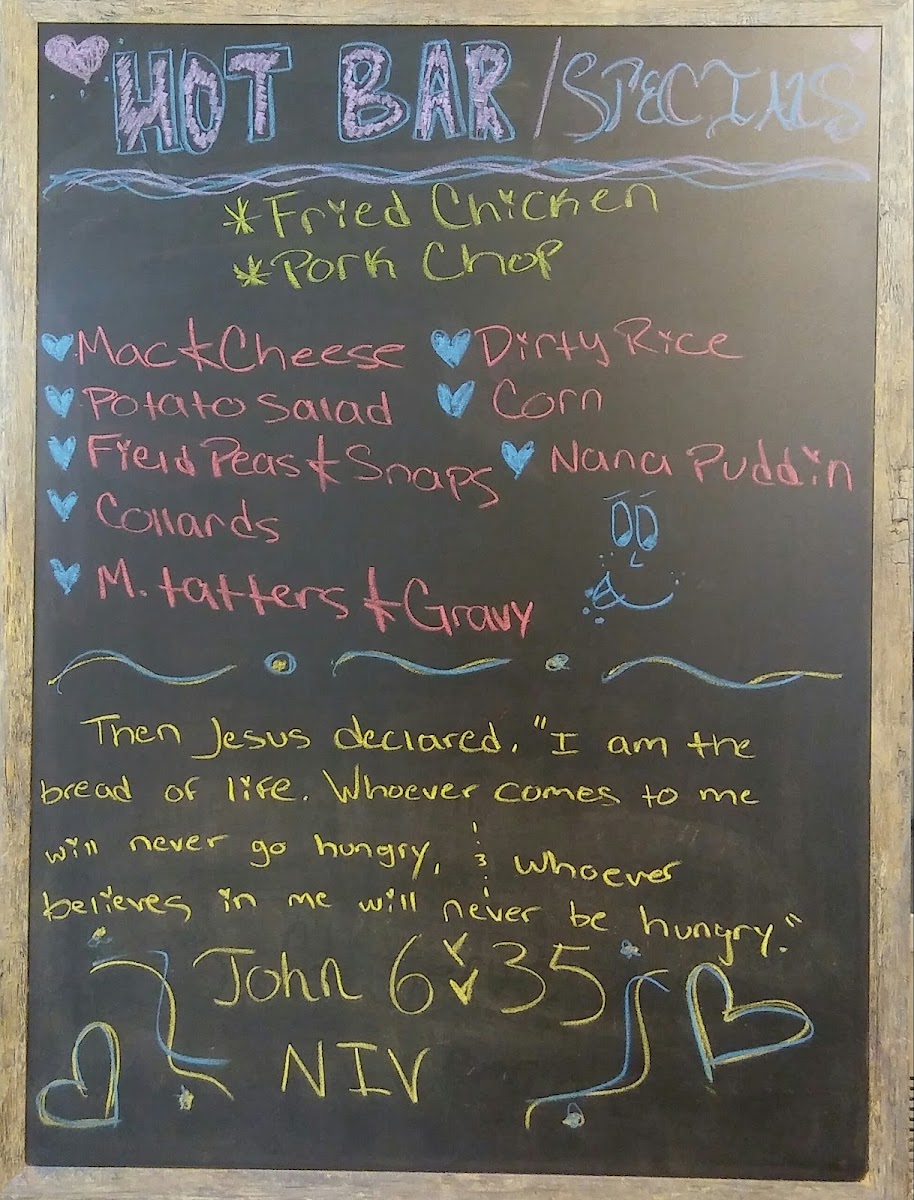 HOT BAR / SPECIALS
*Fried Chicken
*Pork Chop
Mac & Cheese
Dirty Rice
Potato Salad
Corn
Field Peas & Snaps
Nana Puddin
Collards
M. tatters & Gravy
Then Jesus declared, "I am the
bread of life. Whoever comes to me
will never go hungry, & whoever
believes in me will never be hungry."
John 6:35
NIV